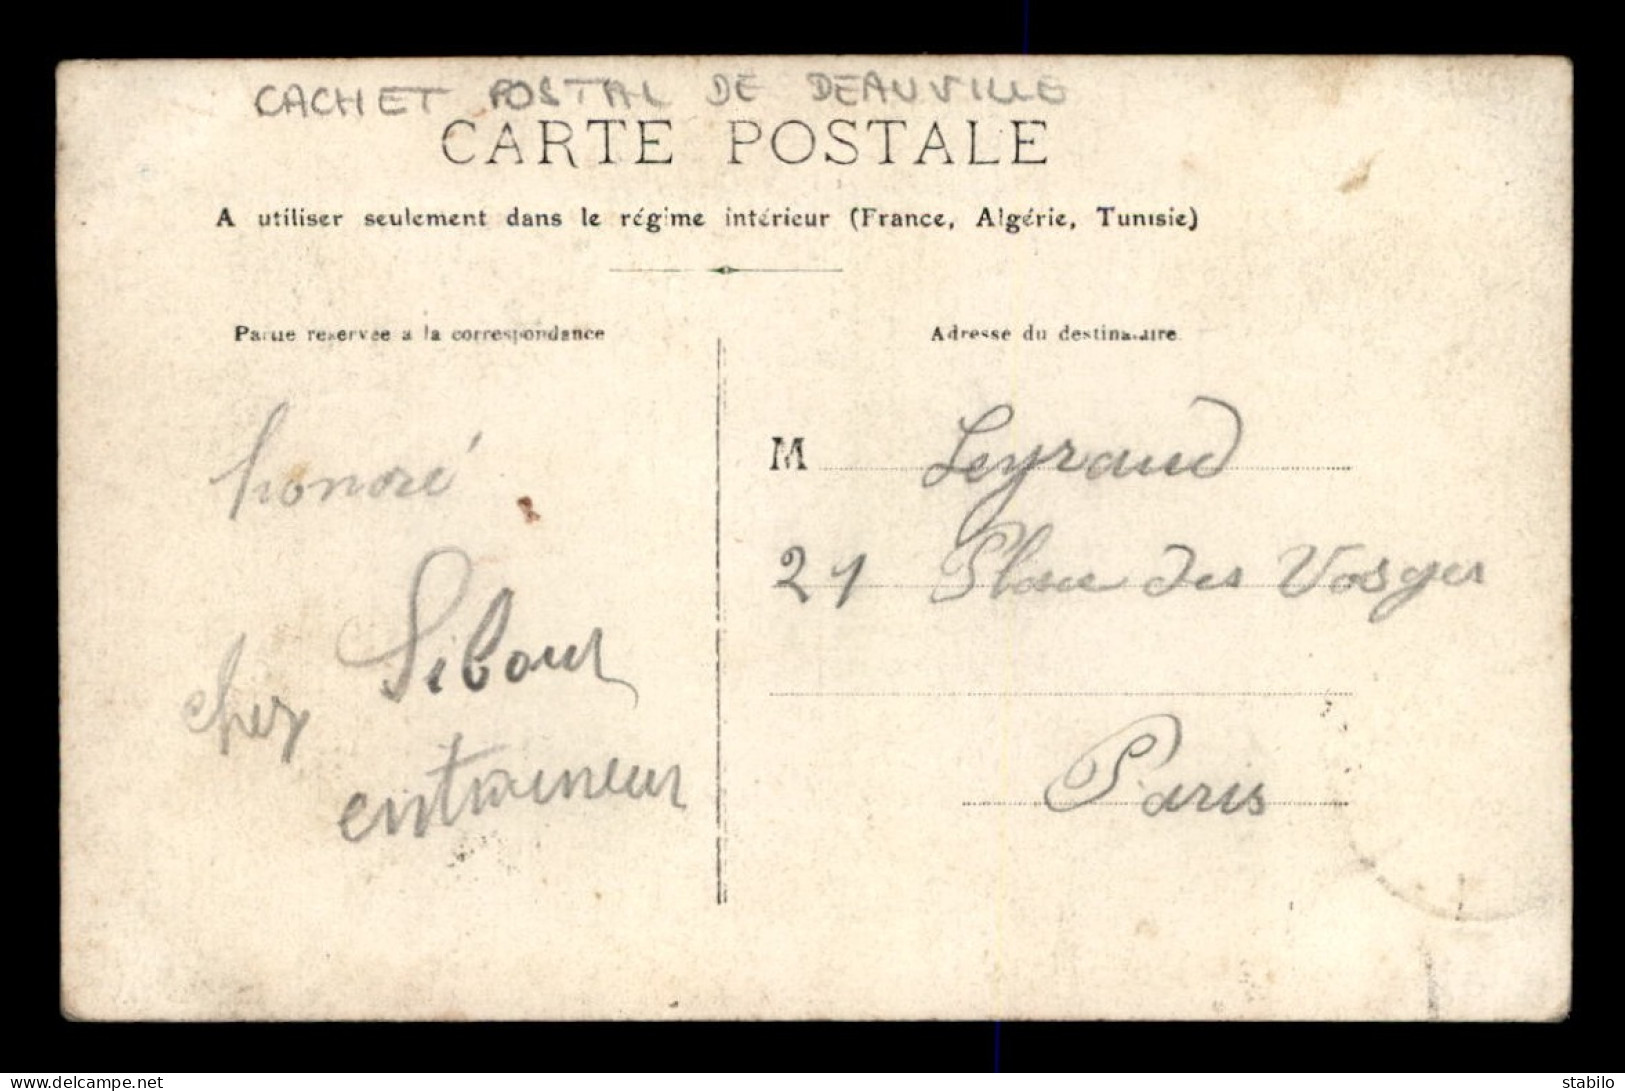 CACHET POSTAL DE DEAUVILLE
CARTE POSTALE
A utiliser seulement dans le régime intérieur (France, Algérie, Tunisie)
Partie réservée à la correspondance
Adresse du destinataire
honoré
chez Sibour
entraineur
M Leyraud
21 Place des Vosges
Paris
www.delcampe.net
stabilo